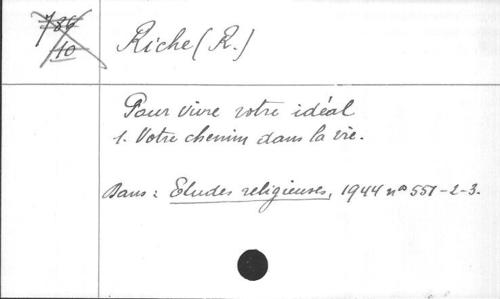 786
10
Riche (R.)
Pour vivre votre idéal
1. Votre chemin dans la vie.
Dans : Etudes religieuses, 1944 nos 551-2-3.